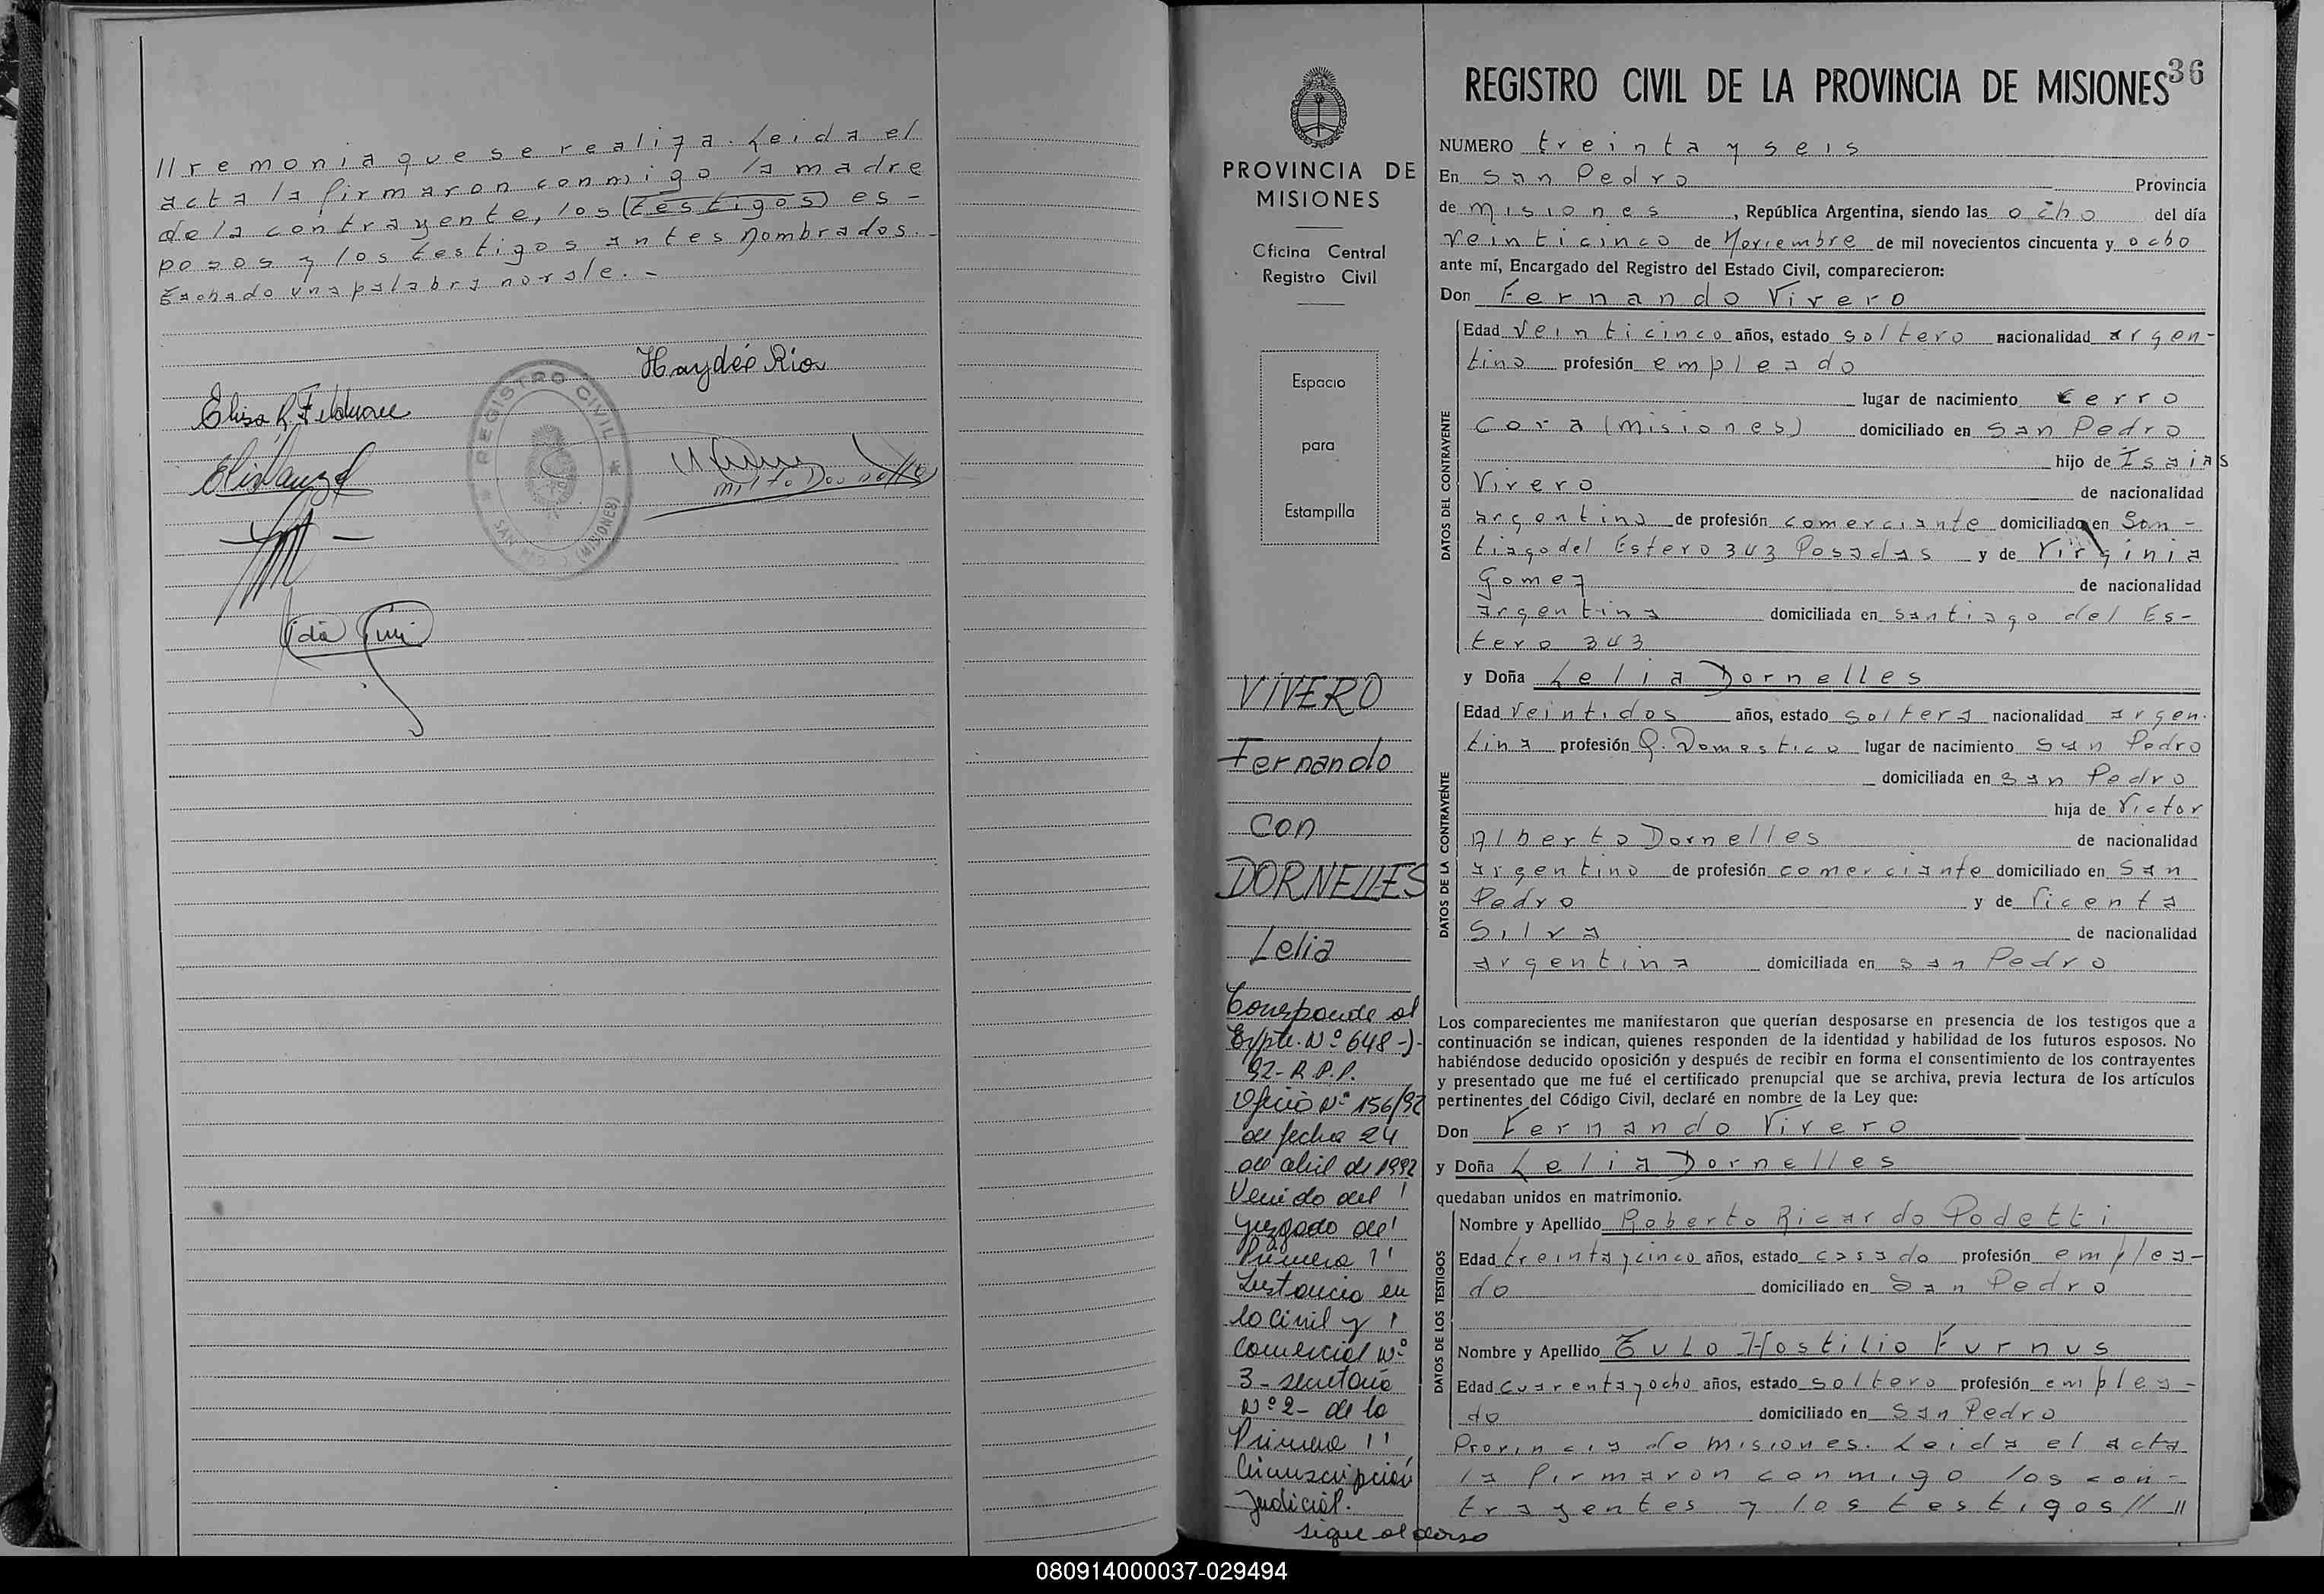 //remonia que se realiza. Leida el
acta la firmaron conmigo la madre
de la contrayente, los (testigos) es-
posos y los testigos antes nombrados.-
Tachado una palabra no vale.-
Haydée Rios
Elisa R.
REGISTRO CIVIL
SAN PEDRO (MISIONES)
36
REGISTRO CIVIL DE LA PROVINCIA DE MISIONES
PROVINCIA DE
MISIONES
Oficina Central
Registro Civil
Espacio
para
Estampilla
VIVERO
Fernando
con
DORNELLES
Lelia
Corresponde al
Expte. Nº 648-)-
92- R.P.P.
Oficio Nº 156/92
de fecha 24
de abril de 1992
Venido del
Juzgado de
Primera
Instancia en
lo Civil y
Comercial Nº
3- secretaria
Nº 2- de la
Primera
Circunscripción
Judicial.
sigue al dorso
NUMERO treinta y seis
En San Pedro Provincia
de Misiones, República Argentina, siendo las ocho del día
veinticinco de Noviembre de mil novecientos cincuenta y ocho
ante mí, Encargado del Registro del Estado Civil, comparecieron:
Don Fernando Vivero
DATOS DEL CONTRAYENTE
Edad veinticinco años, estado soltero nacionalidad argen-
tino profesión empleado
lugar de nacimiento Cerro
Cora (Misiones) domiciliado en San Pedro
hijo de Isaias
Vivero de nacionalidad
argentino de profesión comerciante domiciliado en San-
tiago del Estero 343 Posadas y de Virginia
Gomez de nacionalidad
argentina domiciliada en Santiago del Es-
tero 343
y Doña Lelia Dornelles
DATOS DE LA CONTRAYENTE
Edad veintidos años, estado soltera nacionalidad argen-
tina profesión Q. Domestico lugar de nacimiento San Pedro
domiciliada en San Pedro
hija de Victor
Alberto Dornelles de nacionalidad
argentino de profesión comerciante domiciliado en San
Pedro y de Vicenta
Silva de nacionalidad
argentina domiciliada en San Pedro
Los comparecientes me manifestaron que querían desposarse en presencia de los testigos que a
continuación se indican, quienes responden de la identidad y habilidad de los futuros esposos. No
habiéndose deducido oposición y después de recibir en forma el consentimiento de los contrayentes
y presentado que me fué el certificado prenupcial que se archiva, previa lectura de los artículos
pertinentes del Código Civil, declaré en nombre de la Ley que:
Don Fernando Vivero
y Doña Lelia Dornelles
quedaban unidos en matrimonio.
DATOS DE LOS TESTIGOS
Nombre y Apellido Roberto Ricardo Podetti
Edad treinta y cinco años, estado casado profesión emplea-
do domiciliado en San Pedro
Nombre y Apellido Tulo Hostilio Furnus
Edad cuarenta y ocho años, estado soltero profesión emplea-
do domiciliado en San Pedro
Provincia de Misiones. Leida el acta
la firmaron conmigo los con-
trayentes y los testigos// "
080914000037-029494